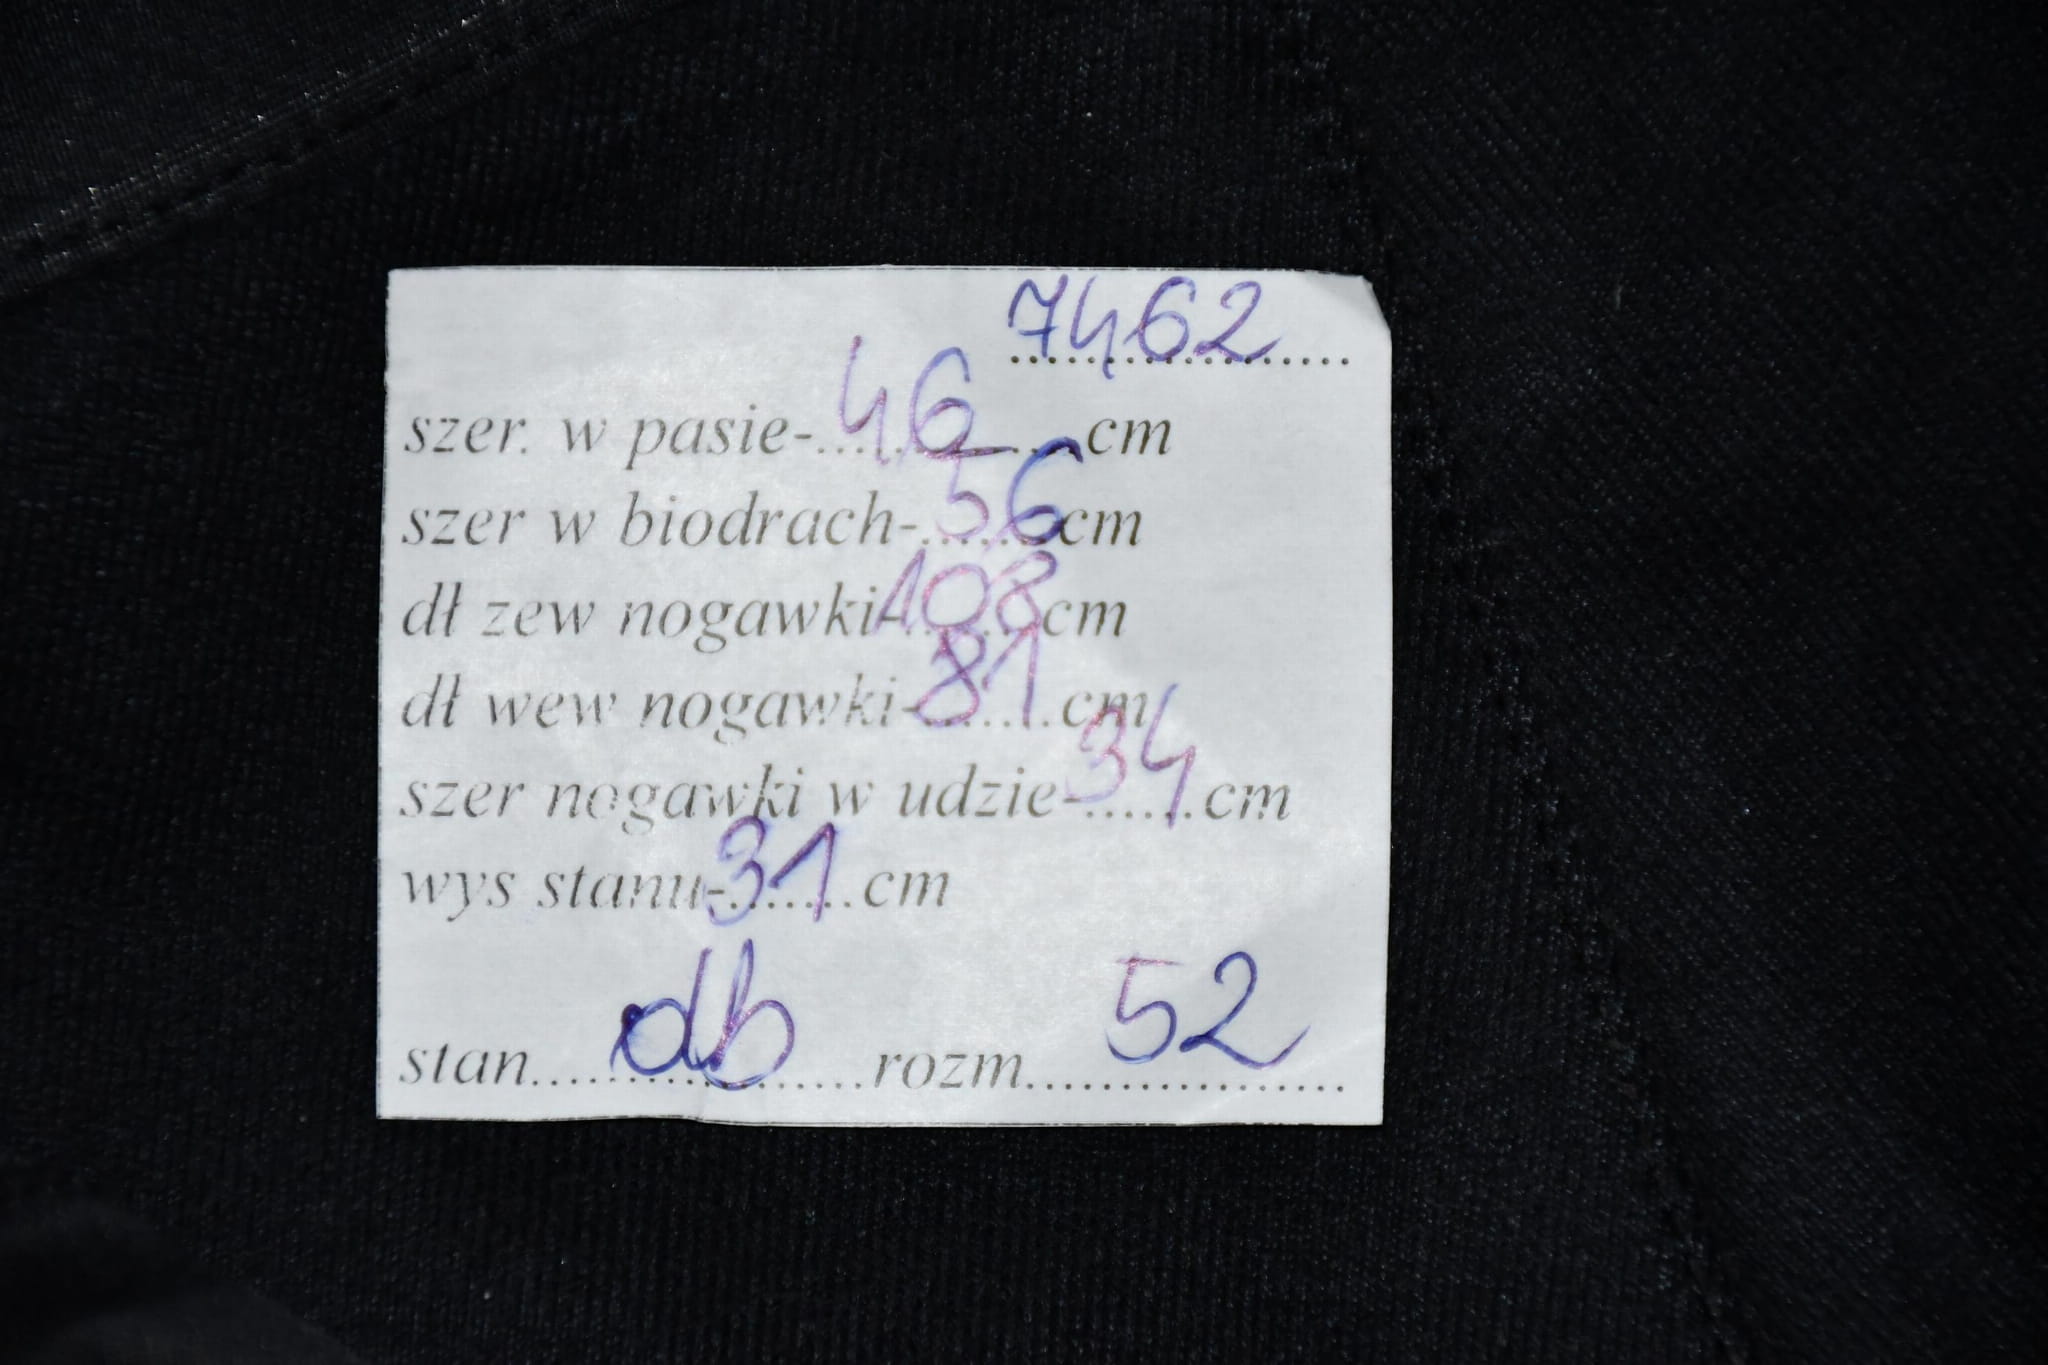 7462
szer. w pasie-....46....cm
szer w biodrach-...56cm
dł zew nogawki-108cm
dł wew nogawki-81...cm
szer nogawki w udzie-34...cm
wys stanu-31...cm
stan....db....rozm....52....